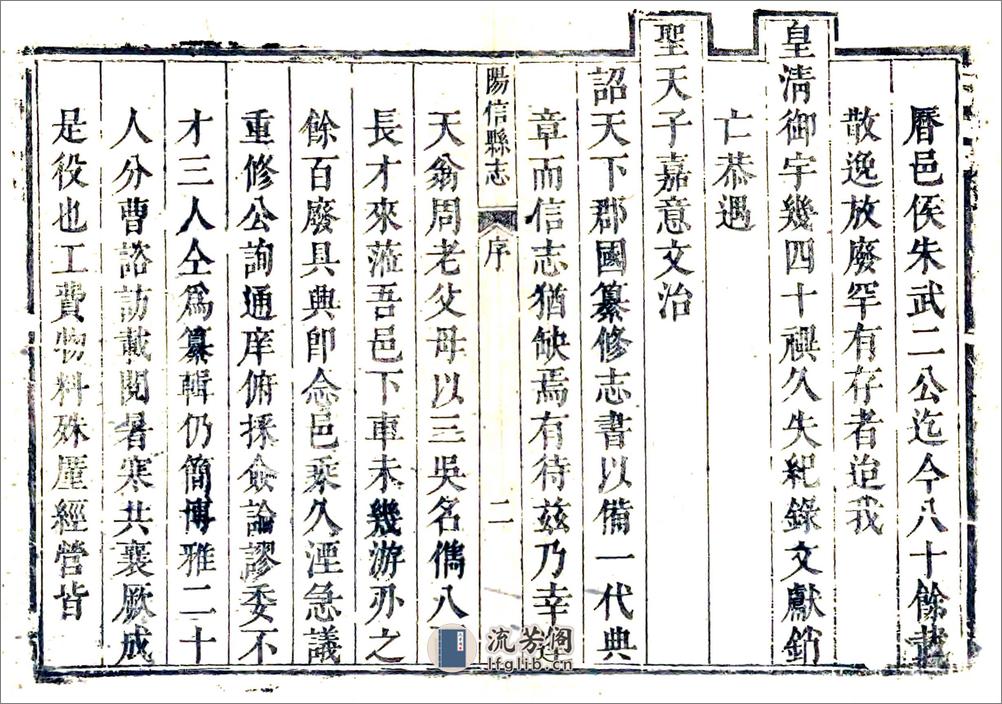 曆邑侯朱武二公迄今八十餘載
散逸放廢罕有存者迨我
皇淸御宇幾四十禩久失紀錄文獻銷
亡恭遇
聖天子嘉意文治
詔天下郡國纂修志書以備一代典
章而信志猶缺焉有待茲乃幸
陽信縣志 序 二
天翁周老父母以三吳名儁八
長才來蒞吾邑下車未幾游刃之
餘百廢具典卽念邑乘久湮急議
重修公詢通庠俯採僉論謬委不
才三人仝爲纂輯仍簡博雅二十
人分曹諮訪載閱暑寒共襄厥成
是役也工費物料殊厪經營皆
流芳阁
lfglib.cn